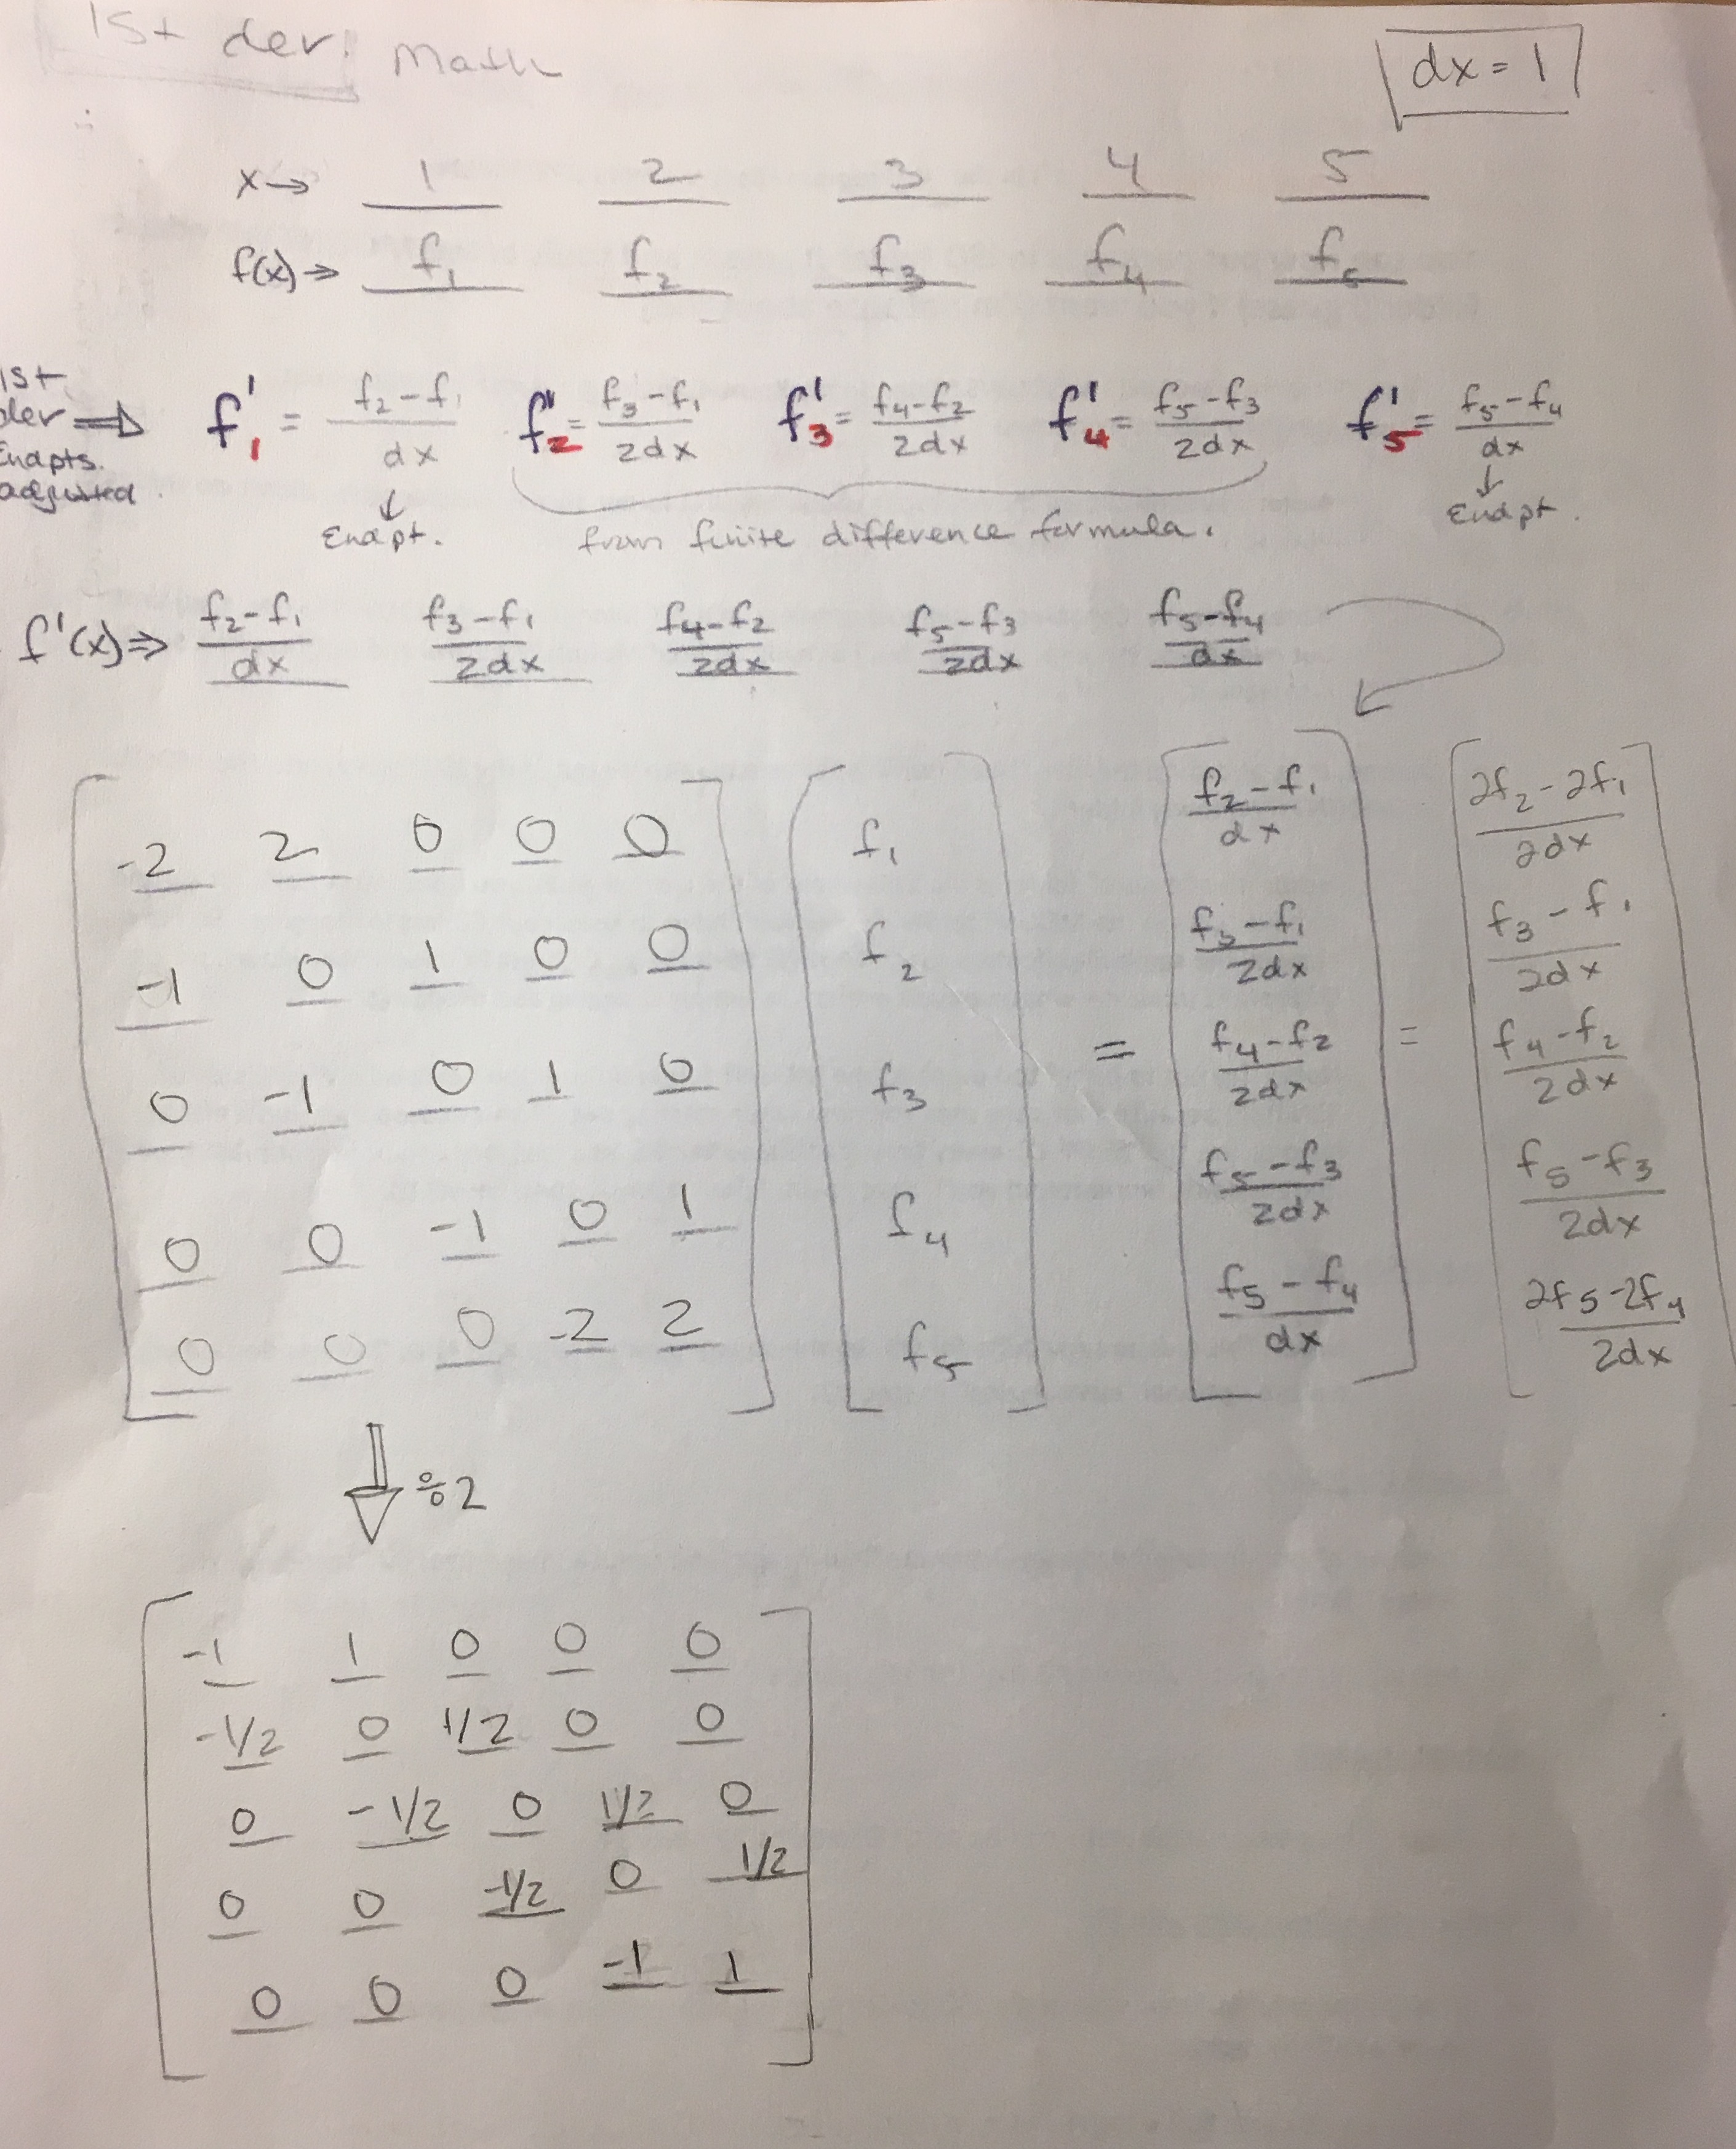 1st der. Math
dx = 1
x → 1 2 3 4 5
f(x) → f₁ f₂ f₃ f₄ f₅
1st der Endpts. adjusted. ⇒ f'₁ = (f₂-f₁)/dx f'₂ = (f₃-f₁)/2dx f'₃ = (f₄-f₂)/2dx f'₄ = (f₅-f₃)/2dx f'₅ = (f₅-f₄)/dx
↓ ↓
Endpt. from finite difference formula. Endpt.
f'(x) ⇒ (f₂-f₁)/dx (f₃-f₁)/2dx (f₄-f₂)/2dx (f₅-f₃)/2dx (f₅-f₄)/dx
-2 2 0 0 0 f₁ (f₂-f₁)/dx (2f₂-2f₁)/2dx
-1 0 1 0 0 f₂ (f₃-f₁)/2dx (f₃-f₁)/2dx
0 -1 0 1 0 f₃ = (f₄-f₂)/2dx = (f₄-f₂)/2dx
0 0 -1 0 1 f₄ (f₅-f₃)/2dx (f₅-f₃)/2dx
0 0 0 -2 2 f₅ (f₅-f₄)/dx (2f₅-2f₄)/2dx
÷2
-1 1 0 0 0
-1/2 0 1/2 0 0
0 -1/2 0 1/2 0
0 0 -1/2 0 1/2
0 0 0 -1 1